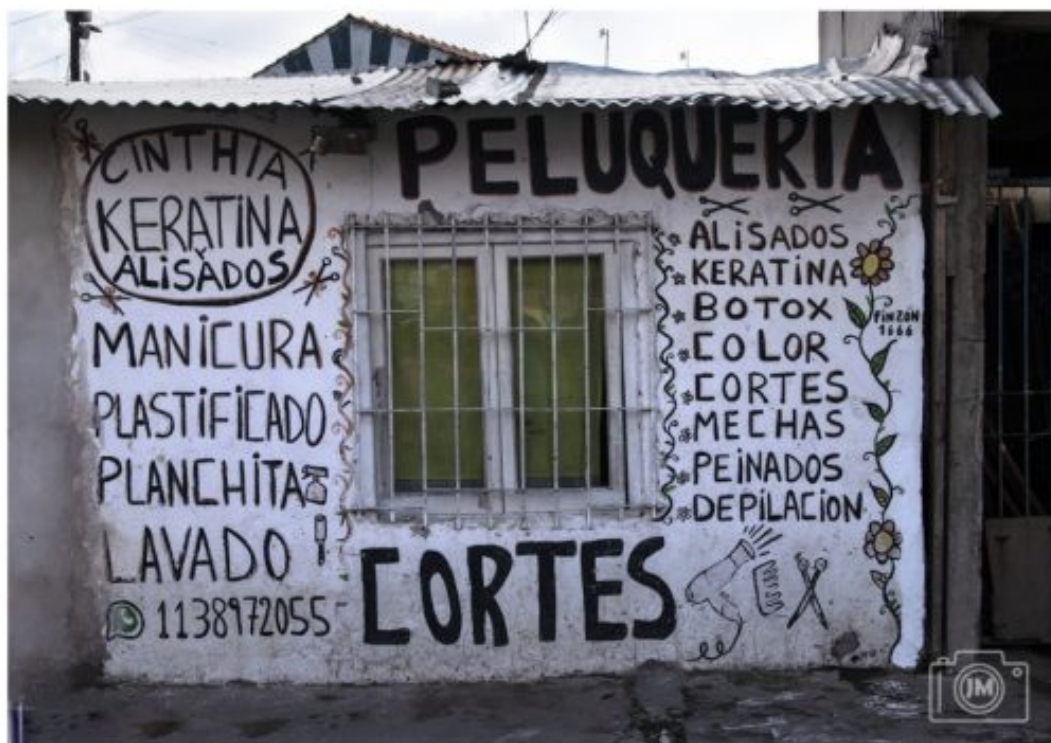 PELUQUERIA
CINTHIA
KERATINA
Y
ALiSADOS
MANiCURA
PLASTiFiCADO
PLANCHiTA
LAVADO
1138972055
ALiSADOS
KERATiNA
BOTOX
COLOR
CORTES
MECHAS
PEiNADOS
DEPiLACiON
PiNZÓN
1666
CORTES
JM